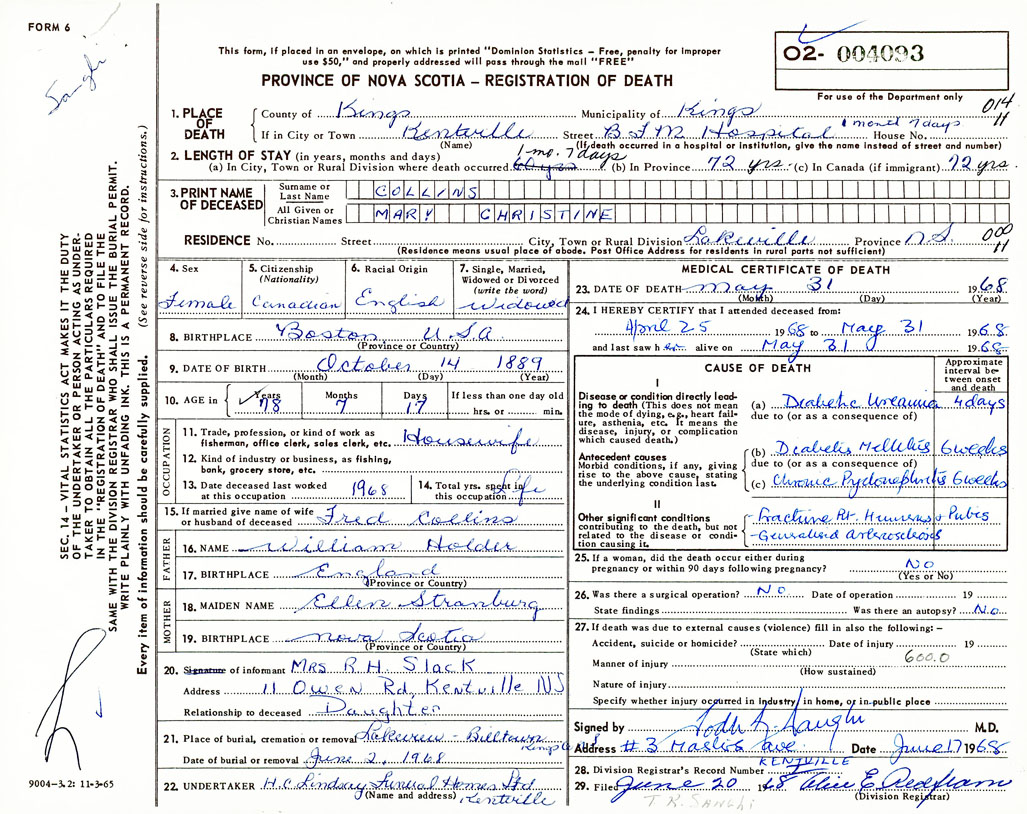 FORM 6
This form, if placed in an envelope, on which is printed "Dominion Statistics – Free, penalty for improper
use $50," and properly addressed will pass through the mail "FREE"
PROVINCE OF NOVA SCOTIA – REGISTRATION OF DEATH
02- 004093
For use of the Department only
014
11
1. PLACE OF DEATH
County of Kings Municipality of Kings
1 month 7 days
If in City or Town Kentville Street B F M Hospital House No.
(Name) (If death occurred in a hospital or institution, give the name instead of street and number)
1 mo. 7 days
2. LENGTH OF STAY (in years, months and days)
(a) In City, Town or Rural Division where death occurred (b) In Province 72 yrs. (c) In Canada (if immigrant) 72 yrs.
3. PRINT NAME OF DECEASED
Surname or Last Name COLLINS
All Given or Christian Names MARY CHRISTINE
RESIDENCE No. Street City, Town or Rural Division Lakeville Province N.S. 000
11
(Residence means usual place of abode. Post Office Address for residents in rural parts not sufficient)
4. Sex Female
5. Citizenship (Nationality) Canadian
6. Racial Origin English
7. Single, Married, Widowed or Divorced (write the word) Widowed
8. BIRTHPLACE Boston U.S.A
(Province or Country)
9. DATE OF BIRTH October 14 1889
(Month) (Day) (Year)
10. AGE in Years 78 Months 7 Days 17 If less than one day old
hrs. or min.
OCCUPATION
11. Trade, profession, or kind of work as
fisherman, office clerk, sales clerk, etc. Housewife
12. Kind of industry or business, as fishing,
bank, grocery store, etc.
13. Date deceased last worked
at this occupation 1968
14. Total yrs. spent in
this occupation Life
15. If married give name of wife
or husband of deceased Fred Collins
FATHER
16. NAME William Holder
17. BIRTHPLACE England
(Province or Country)
MOTHER
18. MAIDEN NAME Ellen Stranburg
19. BIRTHPLACE Nova Scotia
(Province or Country)
20. Signature of informant Mrs. R.H. Slack
Address 11 Owen Rd, Kentville NS
Relationship to deceased Daughter
21. Place of burial, cremation or removal Lakeview - Billtown
Kings Co
Date of burial or removal June 2, 1968
22. UNDERTAKER H.C. Lindsay Funeral Homes Ltd
(Name and address) Kentville
MEDICAL CERTIFICATE OF DEATH
23. DATE OF DEATH May 31 1968
(Month) (Day) (Year)
24. I HEREBY CERTIFY that I attended deceased from:
April 25 1968 to May 31 1968
and last saw her alive on May 31 1968
CAUSE OF DEATH
Approximate interval between onset and death
I
Disease or condition directly leading to death (This does not mean the mode of dying, e.g., heart failure, asthenia, etc. It means the disease, injury, or complication which caused death.)
(a) Diabetic Uraemia 4 days
due to (or as a consequence of)
Antecedent causes
Morbid conditions, if any, giving rise to the above cause, stating the underlying condition last.
(b) Diabetes Mellitus 6 weeks
due to (or as a consequence of)
(c) Chronic Pyelonephritis 6 weeks
II
Other significant conditions
contributing to the death, but not related to the disease or condition causing it.
Fracture Rt. Humerus + Pubis
Generalised Arteriosclerosis
25. If a woman, did the death occur either during
pregnancy or within 90 days following pregnancy? NO
(Yes or No)
26. Was there a surgical operation? NO Date of operation 19
State findings Was there an autopsy? No
27. If death was due to external causes (violence) fill in also the following: –
Accident, suicide or homicide? Date of injury 19
(State which) 600.0
Manner of injury
(How sustained)
Nature of injury
Specify whether injury occurred in industry, in home, or in public place
Signed by M.D.
Address # 3 Masters Ave Date June 17 1968
KENTVILLE
28. Division Registrar's Record Number
29. Filed June 20 1968
(Division Registrar)
T R. SANGHI
9004-3.2: 11-3-65
Sanghi
SEC. 14 – VITAL STATISTICS ACT MAKES IT THE DUTY
OF THE UNDERTAKER OR PERSON ACTING AS UNDER-
TAKER TO OBTAIN ALL THE PARTICULARS REQUIRED
IN THE "REGISTRATION OF DEATH" AND TO FILE THE
SAME WITH THE DIVISION REGISTRAR WHO SHALL ISSUE THE BURIAL PERMIT.
WRITE PLAINLY WITH UNFADING INK. THIS IS A PERMANENT RECORD.
Every item of information should be carefully supplied. (See reverse side for instructions.)